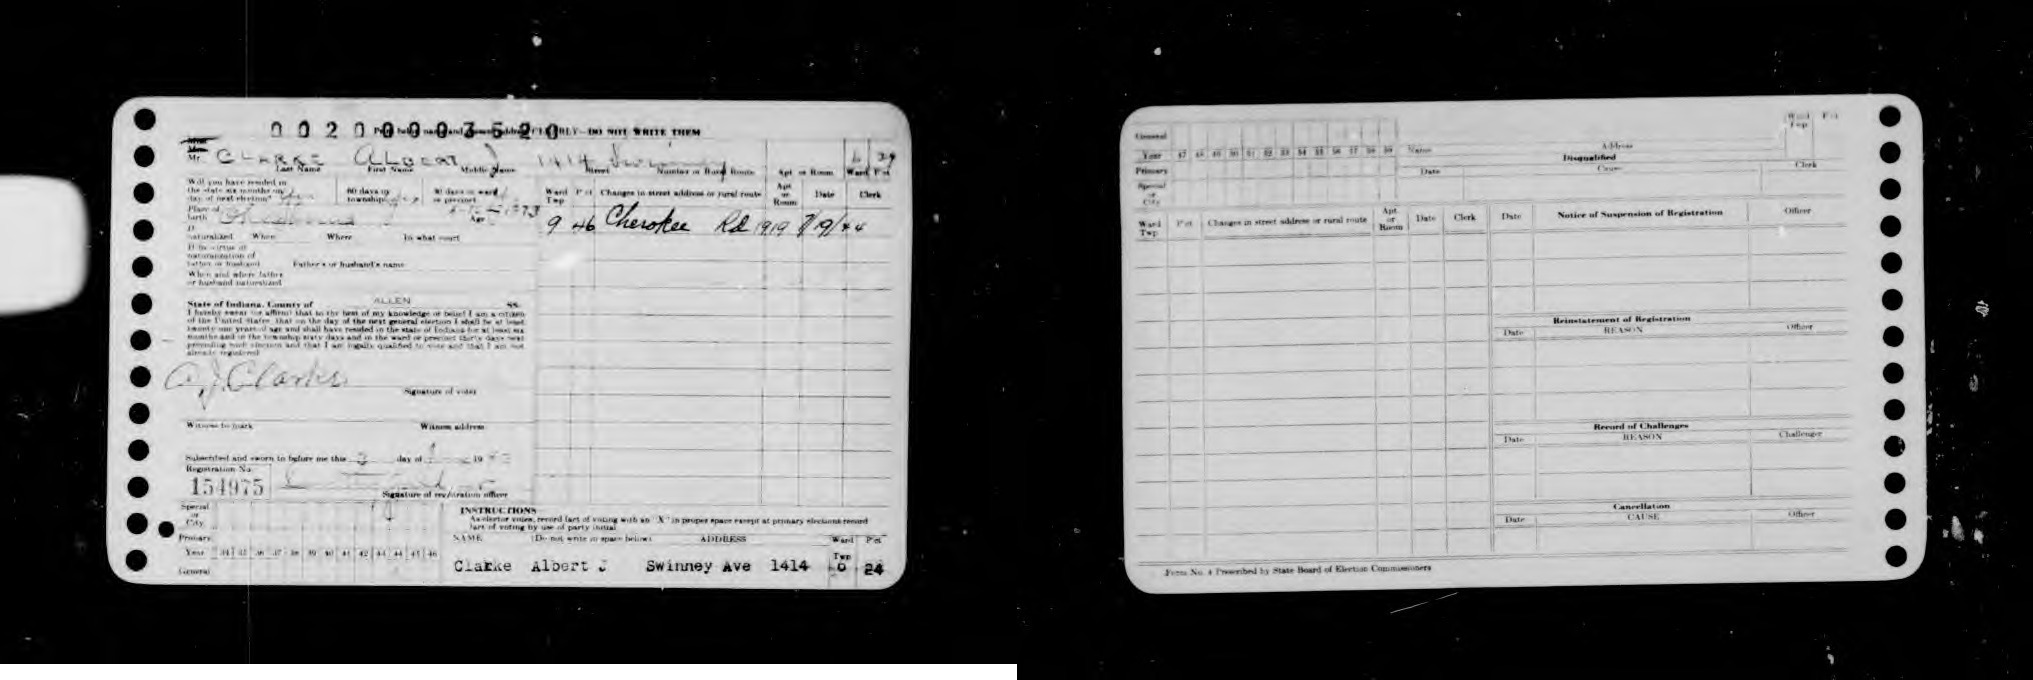 0020003520
Print both name and address CLEARLY—DO NOT WRITE THEM
Mr. CLARKE ALBERT J 1414 Swinney 6 24
Last Name First Name Middle Name Street Number or Rural Route Apt or Room Ward Pct
Will you have resided in the state six months on day of next election? Yes 60 days in township Yes 30 days in ward or precinct
Place of birth Age
If naturalized When Where In what court
If by virtue of naturalization of father or husband Father's or husband's name
When and where father or husband naturalized
Ward Twp Pct Changes in street address or rural route Apt or Room Date Clerk
9 46 Cherokee Rd 1919 7/19/44
State of Indiana, County of ALLEN SS.
I hereby swear (or affirm) that to the best of my knowledge or belief I am a citizen
of the United States, that on the day of the next general election I shall be at least
twenty one years of age and shall have resided in the state of Indiana for at least six
months and in the township sixty days and in the ward or precinct thirty days next
preceding such election and that I am legally qualified to vote and that I am not
already registered
A. J. Clarke
Signature of voter
Witness to mark Witness address
Subscribed and sworn to before me this day of 19
Registration No.
154975
Signature of registration officer
Special or City
Primary
Year 34 35 36 37 38 39 40 41 42 43 44 45 46
General
INSTRUCTIONS
As elector votes, record fact of voting with an "X" in proper space except at primary elections record
fact of voting by use of party initial
NAME (Do not write in space below) ADDRESS Ward Twp Pct
Clarke Albert J Swinney Ave 1414 6 24
General
Year 47 48 49 50 51 52 53 54 55 56 57 58 59
Primary
Special or City
Name Address Ward Twp Pct
Disqualified
Date Cause Clerk
Ward Twp Pct Changes in street address or rural route Apt. or Room Date Clerk
Date Notice of Suspension of Registration Officer
Reinstatement of Registration
Date REASON Officer
Record of Challenges
Date REASON Challenger
Cancellation
Date CAUSE Officer
Form No. 4 Prescribed by State Board of Election Commissioners